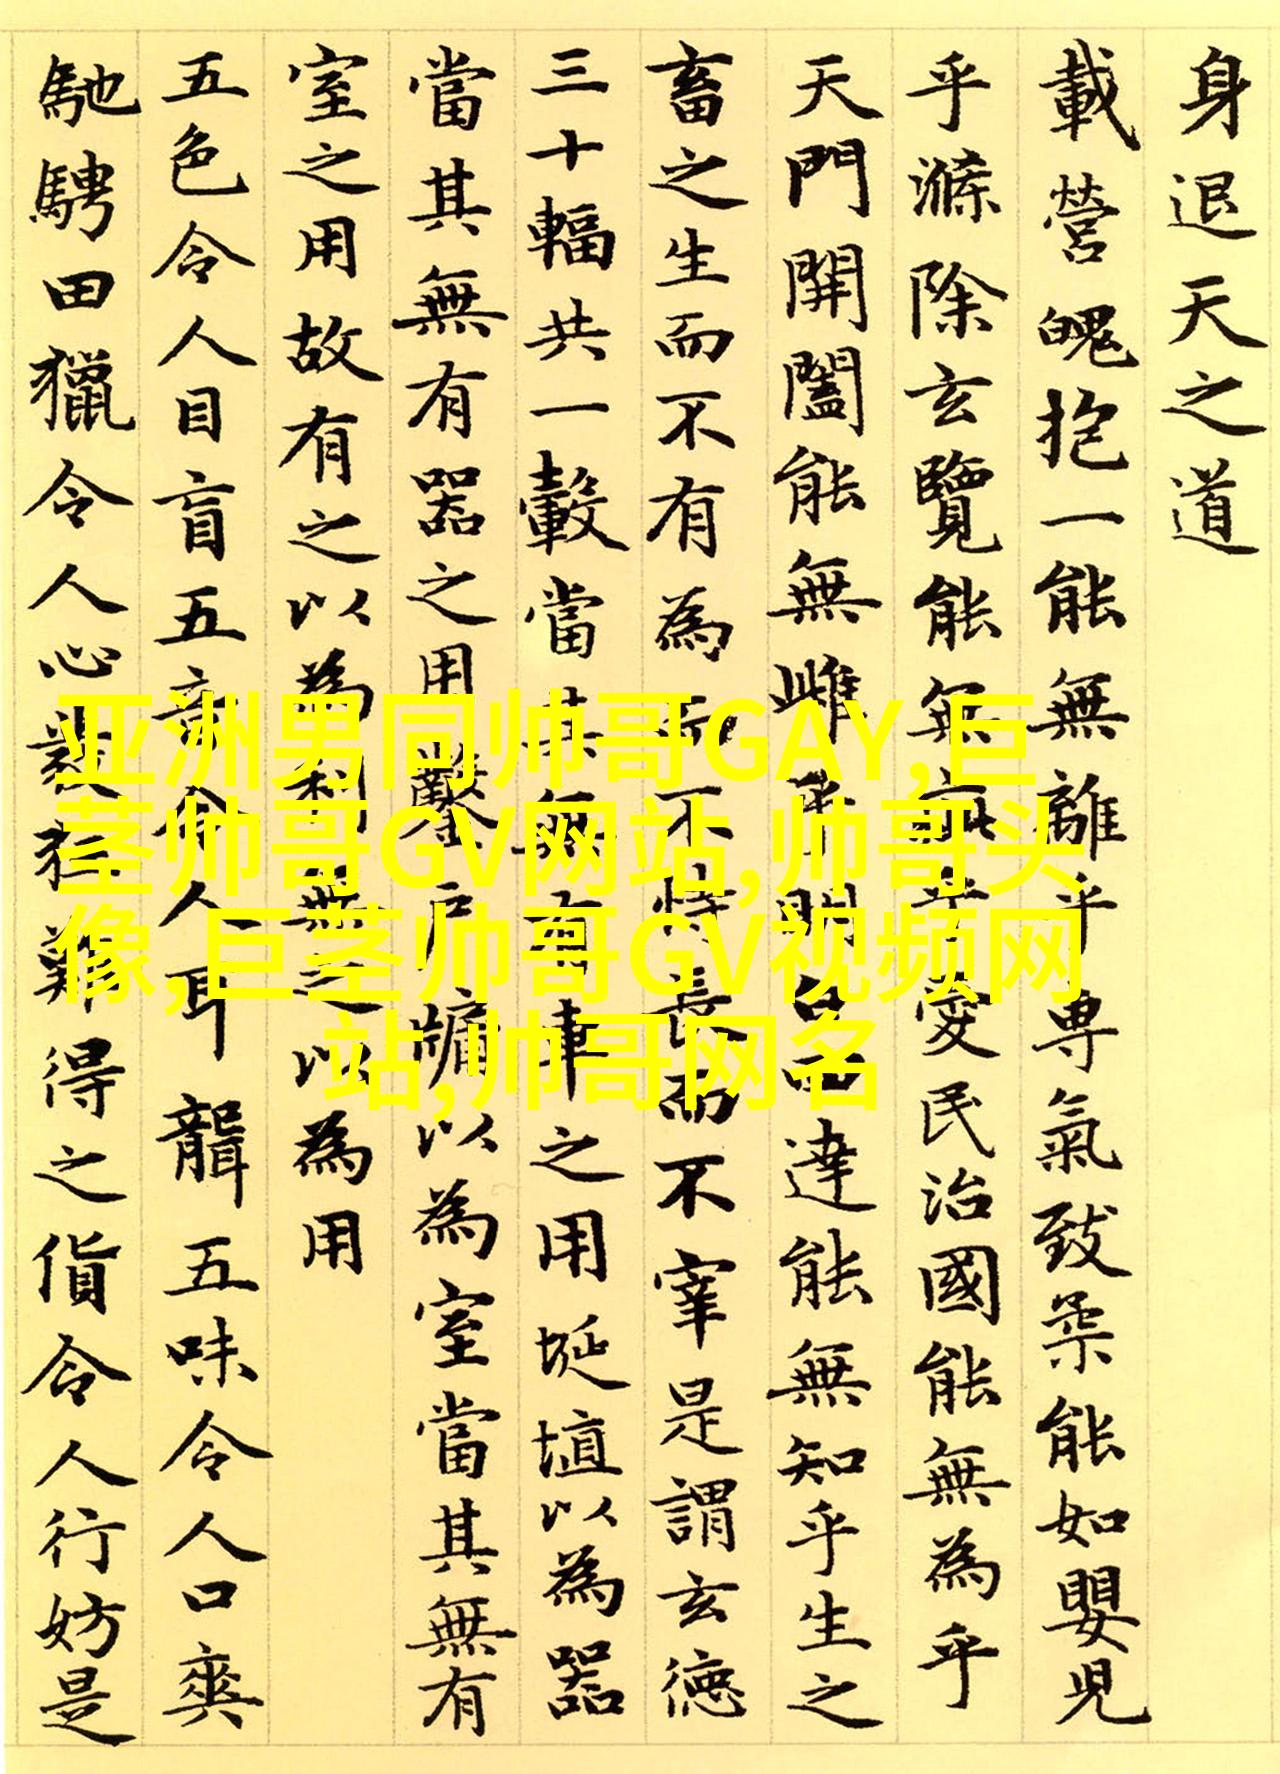 身退天之道
載營魄抱一能無離乎專氣致柔能如嬰兒
乎滌除玄覽能無疵乎愛民治國能無為乎
天門開闔能無雌乎明白四達能無知乎生之
畜之生而不有為而不恃長而不宰是謂玄德
三十輻共一轂當其無有車之用埏埴以為器
當其無有器之用鑿戶牖以為室當其無有
室之用故有之以為利無之以為用
五色令人目盲五音令人耳聾五味令人口爽
馳騁田獵令人心發狂難得之貨令人行妨是
亚洲男同帅哥GAY,巨
茎帅哥GV网站,帅哥头
像,巨茎帅哥GV视频网
站,帅哥网名